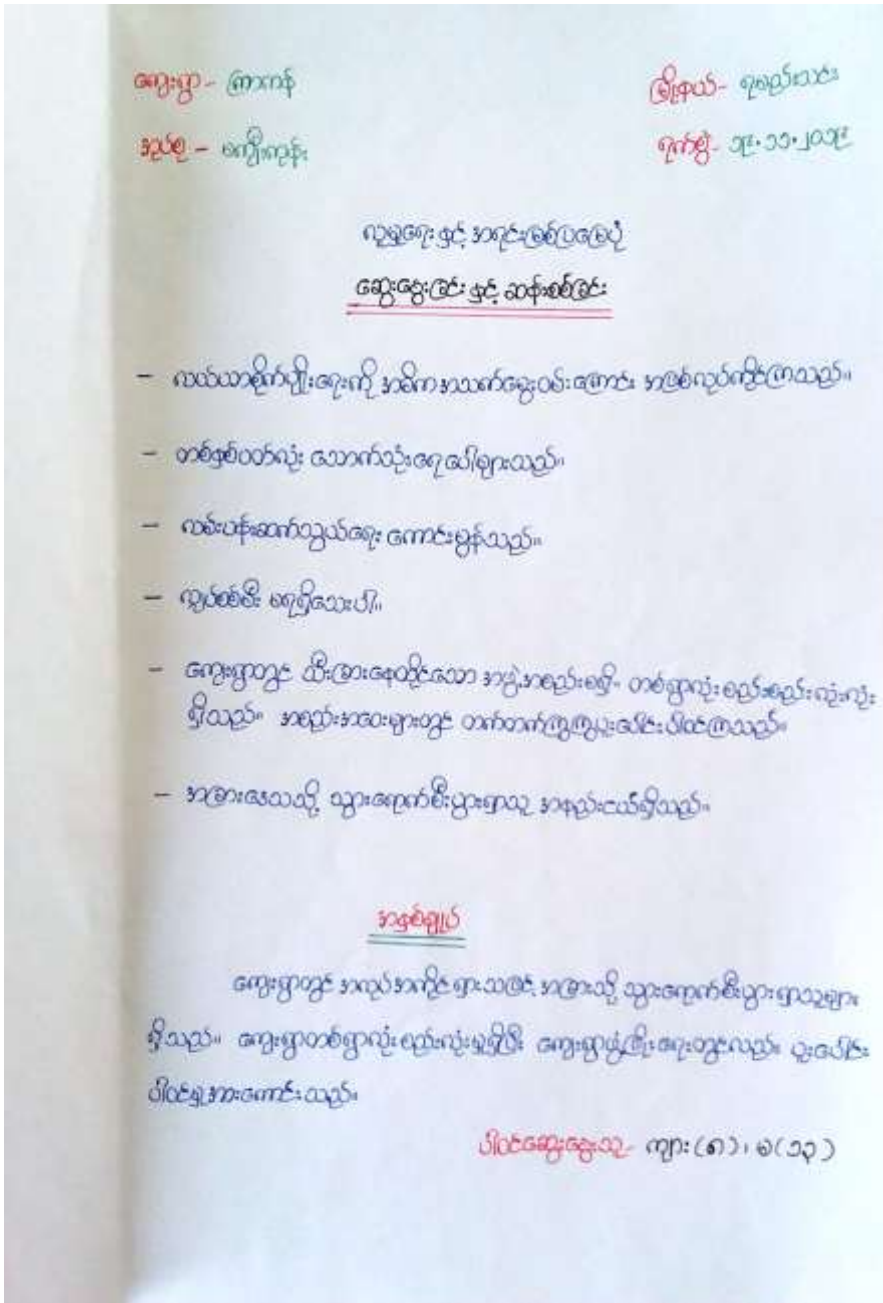 ကျေးရွာ - ကြာကန် မြို့နယ် - ရမည်းသင်း
အုပ်စု - မကျီးကုန်း ရက်စွဲ - ၁၉.၁၁.၂၀၁၉
လူမှုရေး နှင့် အရင်းမြစ်ပြမြေပုံ
ဆွေးနွေးခြင်း နှင့် ဆန်းစစ်ခြင်း
- လယ်ယာစိုက်ပျိုးရေးကို အဓိက အသက်မွေးဝမ်းကြောင်း အဖြစ်လုပ်ကိုင်ကြသည်။
- တစ်နှစ်ပတ်လုံး သောက်သုံးရေ ပေါများသည်။
- လမ်းပန်းဆက်သွယ်ရေး ကောင်းမွန်သည်။
- လျှပ်စစ်မီး မရရှိသေးပါ။
- ကျေးရွာတွင် သီးခြားနေထိုင်သော အဖွဲ့အစည်းမရှိ။ တစ်ရွာလုံး စည်းစည်းလုံးလုံး
ရှိသည်။ အစည်းအဝေးများတွင် တက်တက်ကြွကြွပူးပေါင်း ပါဝင်ကြသည်။
- အခြားဒေသသို့ သွားရောက်စီးပွားရှာသူ အနည်းငယ်ရှိသည်။
အနှစ်ချုပ်
ကျေးရွာတွင် အလုပ်အကိုင်ရှားသဖြင့် အခြားသို့ သွားရောက်စီးပွားရှာသူများ
ရှိသည်။ ကျေးရွာတစ်ရွာလုံး စည်းလုံးမှုရှိပြီး ကျေးရွာဖွံ့ဖြိုးရေးတွင်လည်း ပူးပေါင်း
ပါဝင်မှု အားကောင်းသည်။
ပါဝင်ဆွေးနွေးသူ - ကျား (၈)၊ မ (၁၃)